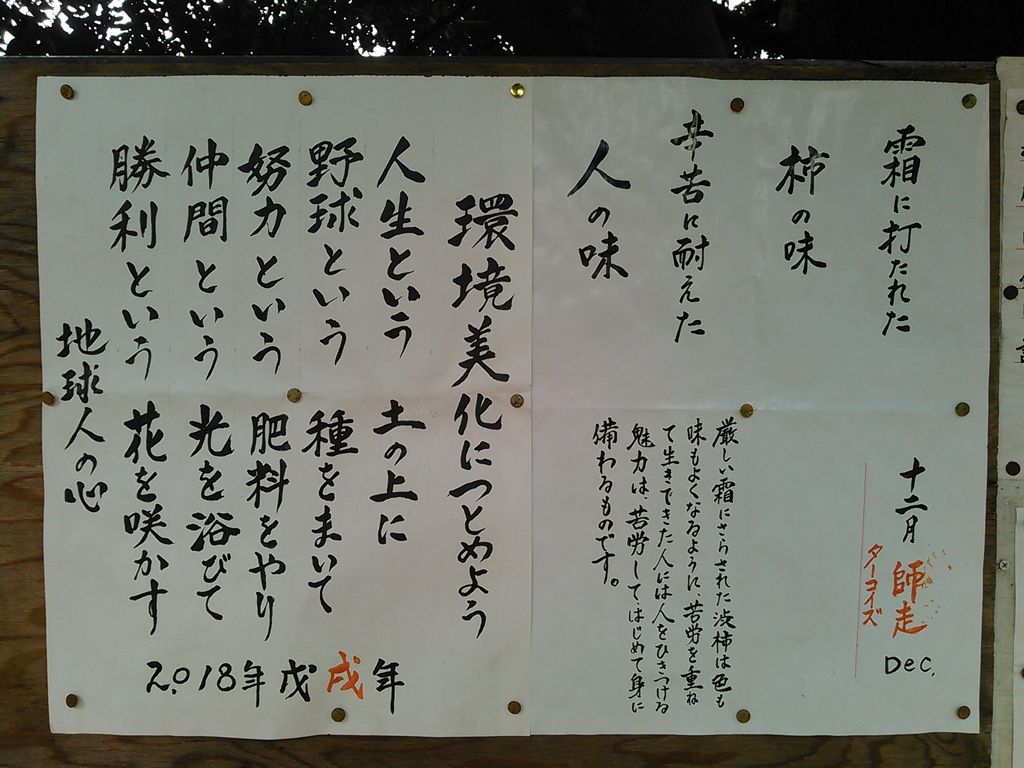 霜に打たれた
柿の味
辛苦に耐えた
人の味
十二月
師走
Dec.
ターコイズ
厳しい霜にさらされた渋柿は色も
味もよくなるように、苦労を重ね
て生きてきた人には人をひきつける
魅力は、苦労して、はじめて身に
備わるものです。
環境美化につとめよう
人生という 土の上に
野球という 種をまいて
努力という 肥料をやり
仲間という 光を浴びて
勝利という 花を咲かす
地球人の心
2.018年戊戌年